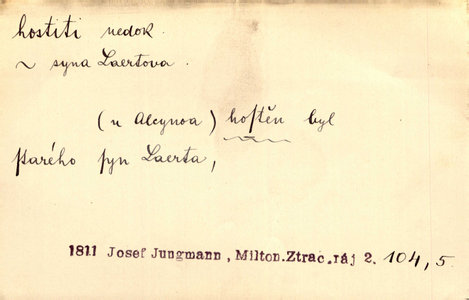 hostiti nedok.
~ syna Laertova.
(u Alcynoa) hoſtěn byl
ſtarého ſyn Laerta,
1811 Josef Jungmann, Milton.Ztrac.ráj 2. 104, 5.